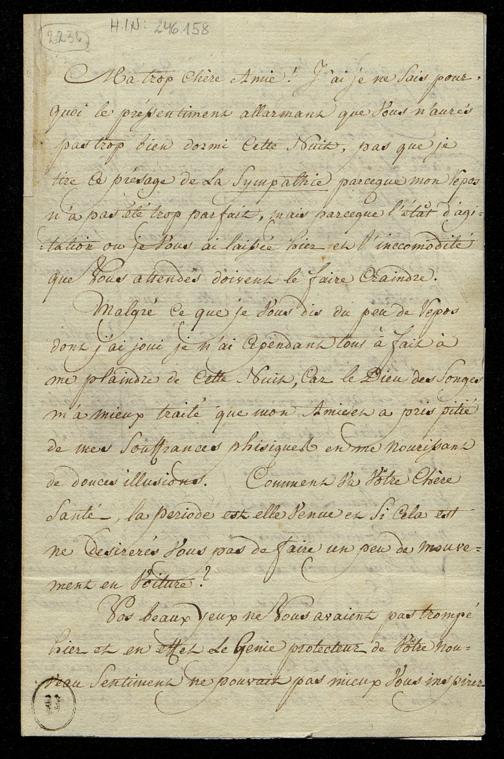 H.I.N: 246.158
2236
Ma trop Chère Amie! J'ai je ne sais pour-
quoi le préssentiment allarmant que Vous n'aurés
pas trop bien dormi Cette Nuit, pas que je
tire ce présage de la Sympathie parceque mon repos
n'a pas été trop parfait, mais parceque l'état d'agi-
tation ou je Vous ai laissée hier et l'incomodité
que Vous attendés doivent le faire Craindre.
Malgré ce que je Vous dis du peu de repos
dont j'ai joui je n'ai Cépendant tous à fait à
me plaindre de Cette Nuit, Car le Dieu des Songes
m'a mieux traité que mon Amie et a pris pitié
de mes Souffrances phisiques en me nourissant
de douces illusions. Comment va Votre Chère
Santé, la periode est elle Venue et Si Cela est
ne desirerés Vous pas de faire un peu de mouve-
ment en Voiture?
Vos beaux yeux ne Vous avaient pas trompé
hier et en effet Le Genie protecteur de Votre nou-
veau Sentiment ne pouvait pas mieux Vous inspirer